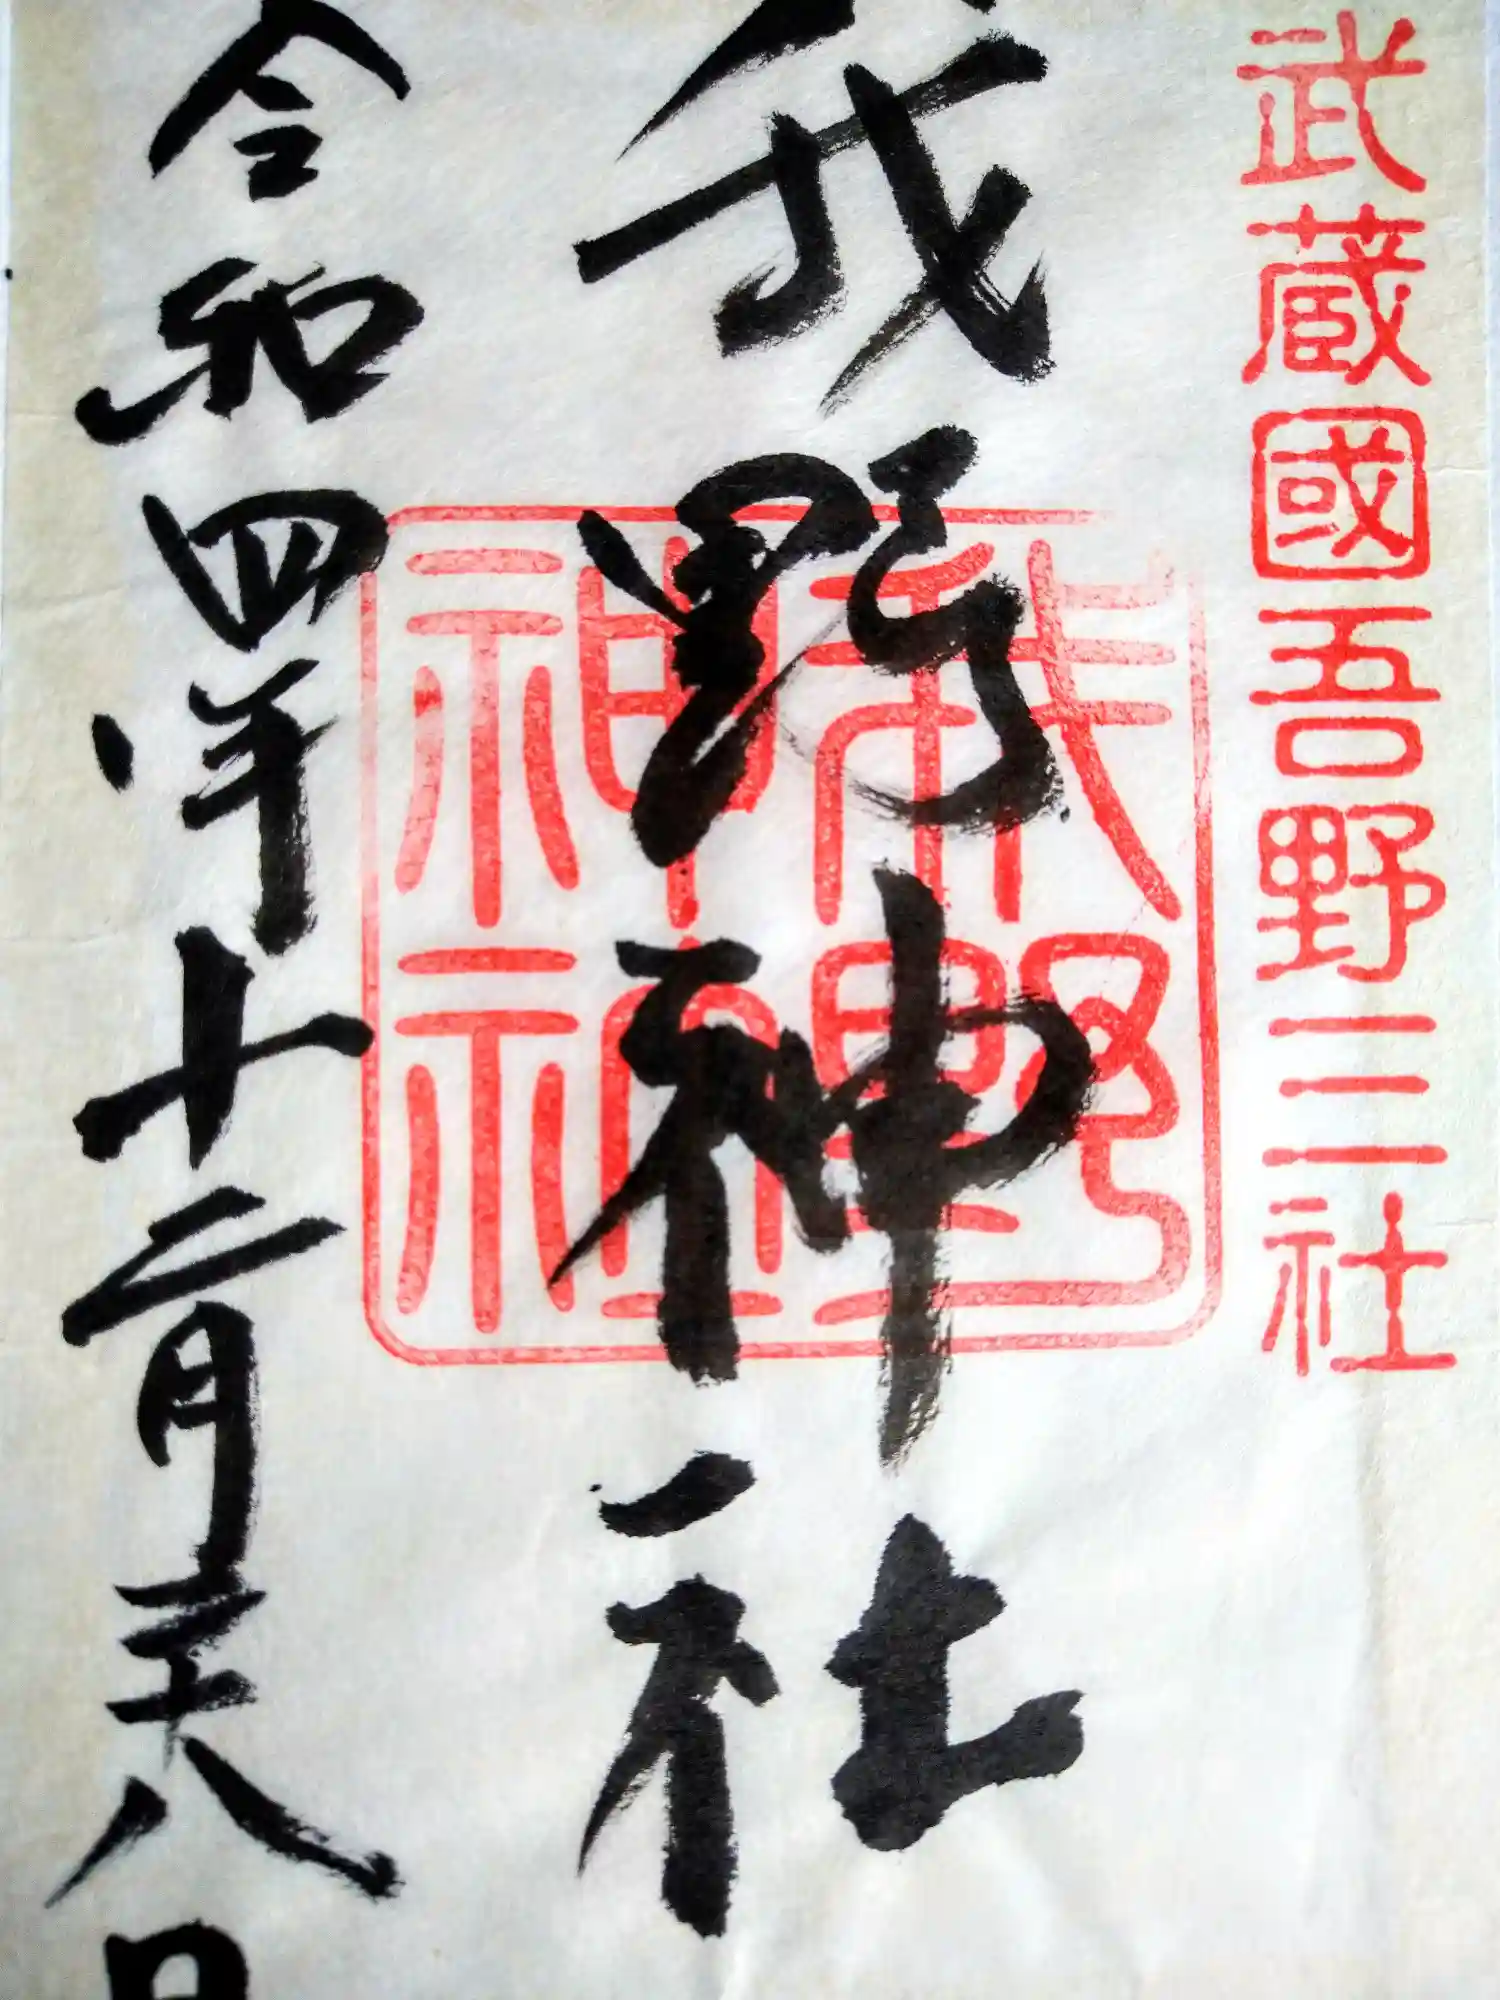 武蔵國吾野三社
我野神社
我野
神社
令和四年十二月二十八日